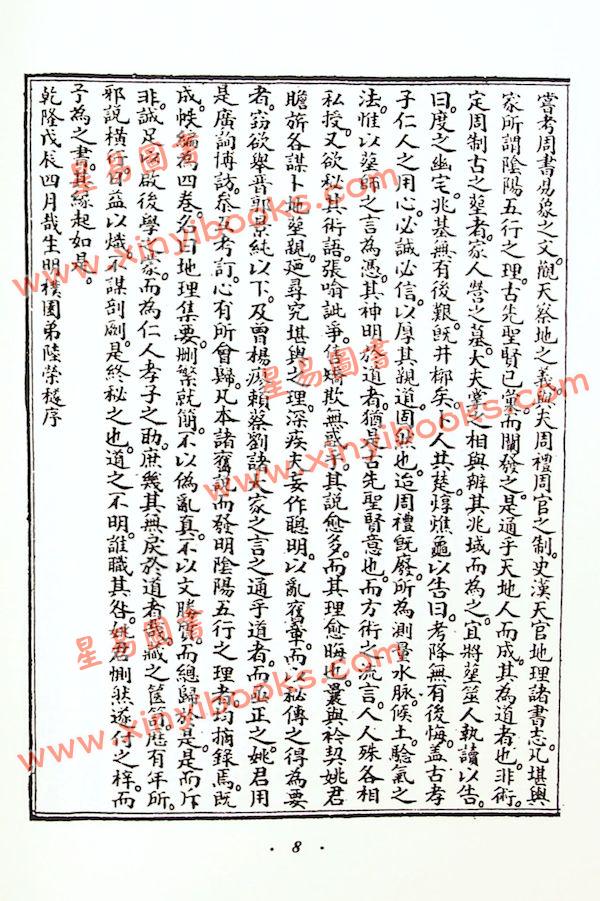 嘗考周書易象之文。觀天察地之義。與夫周禮周官之制。史漢天官地理諸書志。凡堪輿
家所謂陰陽五行之理。古先聖賢已彙而闡發之。是通乎天地人而成。其為道者也。非術。
定周制古之塟者。家人營之墓。大夫掌之。相與辨其兆域而為之。宜將塟筮人執讀以告。
曰度之幽宅。兆基無有後艱。旣井椰矣。卜人共楚焞燋龜以告曰。考降無有後悔。蓋古孝
子仁人之用心。必誠必信。以厚其親道固然也。迨周禮旣廢。所為測量水脉。候土驗氣之
法。惟以塟師之言為憑。其神明於道者。猶是古先聖賢意也。而方術之流言。人人殊各相
私授。又欲秘其術語。張喻訿爭。信矯欺無惑乎。其說愈多。而其理愈晦也。曩與衿契姚君
瞻旂各謀卜地塟親。廼尋究堪輿之理。深疾夫妄作聰明。以亂舊章。而以秘傳之得為要
者。窃欲舉晋郭景純以下。及曾楊廖賴蔡劉諸大家之言之通乎道者。而亟正之。姚君用
是廣詢博訪。叅互考訂。心有所會歸。凡本諸舊說而發明陰陽五行之理者。均摘錄焉。旣
成帙。編為四卷。名曰地理集要。刪繁就簡。不以偽亂真。不以文勝質。而總歸於是。是而斥
非。誠足以啟後學之家。而為仁人孝子之助。庶幾其無戾於道者哉。藏之篋笥。歷有年所。
邪說橫行。日益以熾。不謀剖劂。是終秘之也。道之不明。誰職其咎。姚君惻然。遂付之梓。而
予為之書其緣起如是。
乾隆戊辰四月哉生明樸園弟陸榮樾序
星易圖書
www.xinyibooks.com
星易圖書
www.xinyibooks.com
星易圖書
www.xinyibooks.com
星易圖書
www.xinyibooks.com
· 8 ·